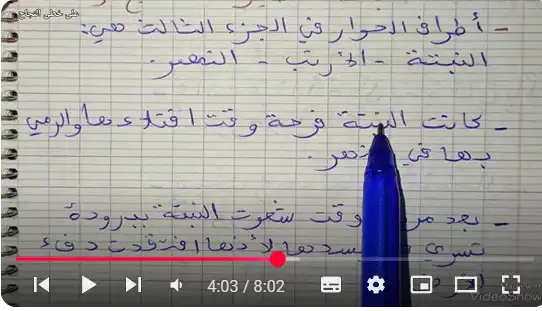 على خطى النجاح
- أطراف الحوار في الجزء الثالث هي:
النبتة - الأرنب - النهر.
- كانت النبتة فرحة وقت اقتلاعها والرمي
بها في نهر.
- بعد من وقت شعرت النبتة ببرودة
تسري سدها لأنها افتقدت دفء
4:03 / 8:02
Made With
VideoShow